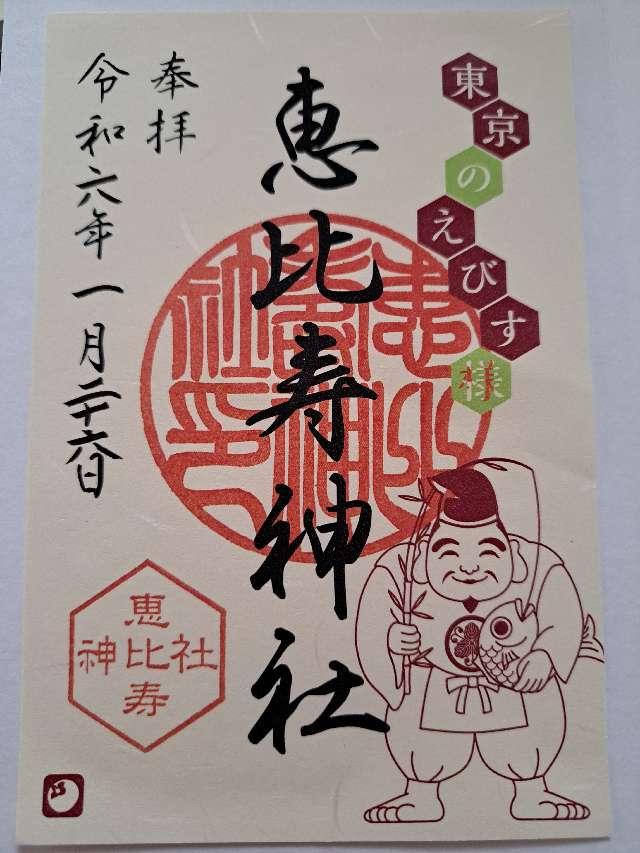 東京のえびす様
恵比寿神社
奉拝
令和六年一月二十六日
恵
神比社
寿